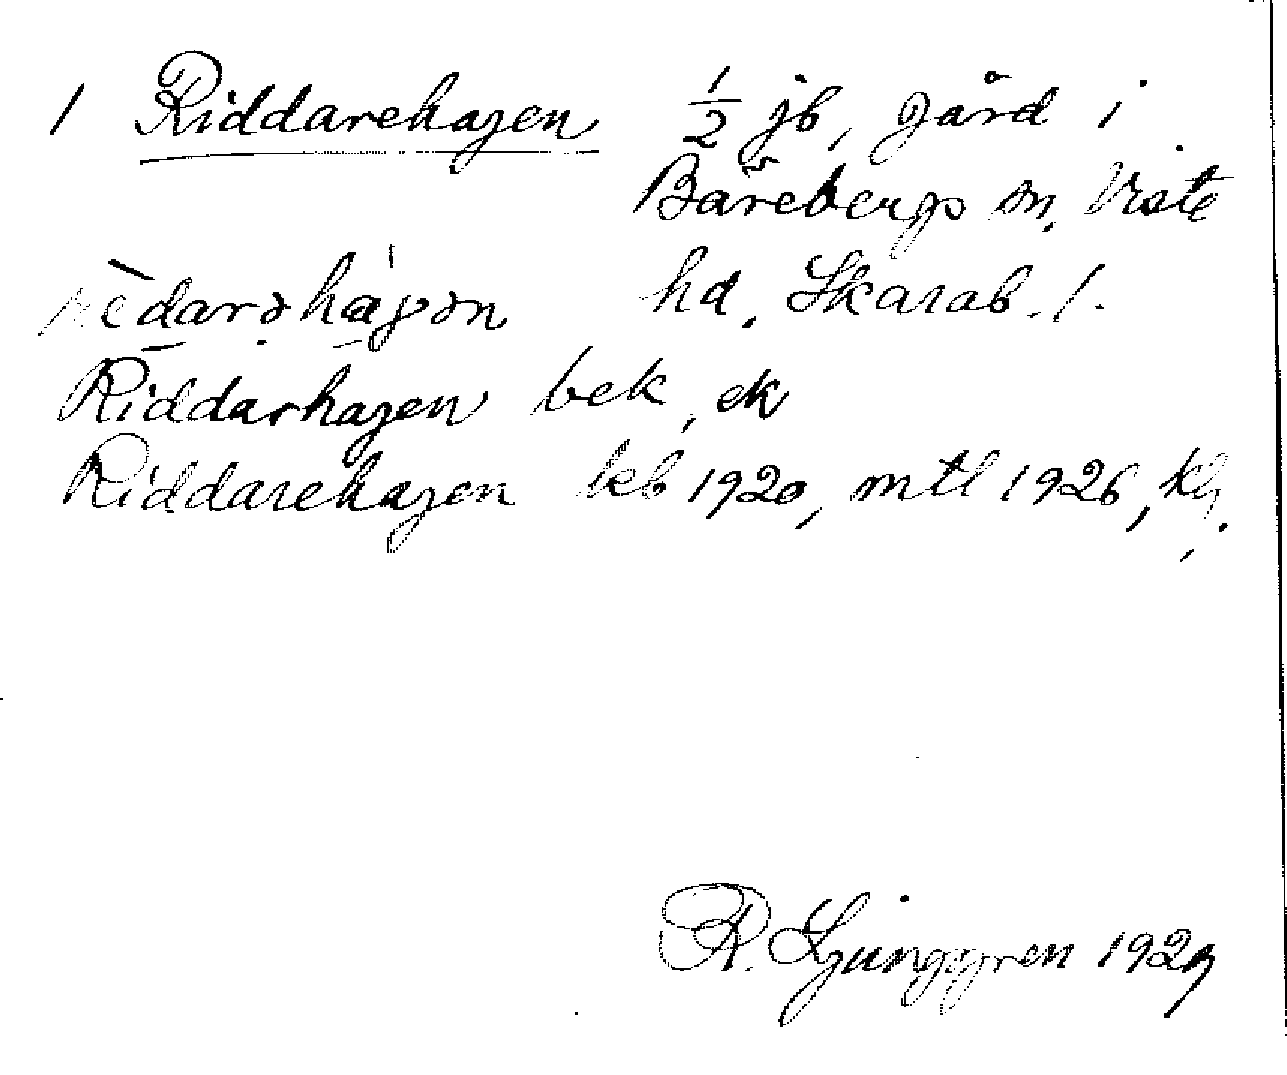 1 Riddarehagen ½ jb, gård i
Bärebergs sn. Viste
hd. Skarab. l.
Riddarhagen bek, ek
Riddarehagen kb 1920, mtl 1926, kg.
R. Ljunggren 1929